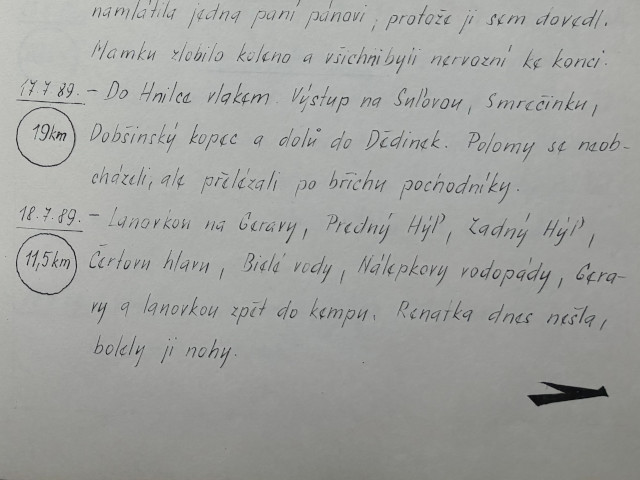 namlátila jedna paní pánovi, protože ji sem dovedl.
Mamku zlobilo koleno a všichni byli nervozní ke konci.
17.7.89. – Do Hnilce vlakem. Výstup na Suľovou, Smrečinku,
19km Dobšinský kopec a dolů do Dědinek. Polomy se neob-
cházeli, ale přelézali po břichu pochodníky.
18.7.89. – Lanovkou na Geravy, Predný Hýľ, Zadný Hýľ,
11,5km Čertovu hlavu, Bielé vody, Nálepkovy vodopády, Gera-
vy a lanovkou zpět do kempu. Renatka dnes nešla,
bolely ji nohy.